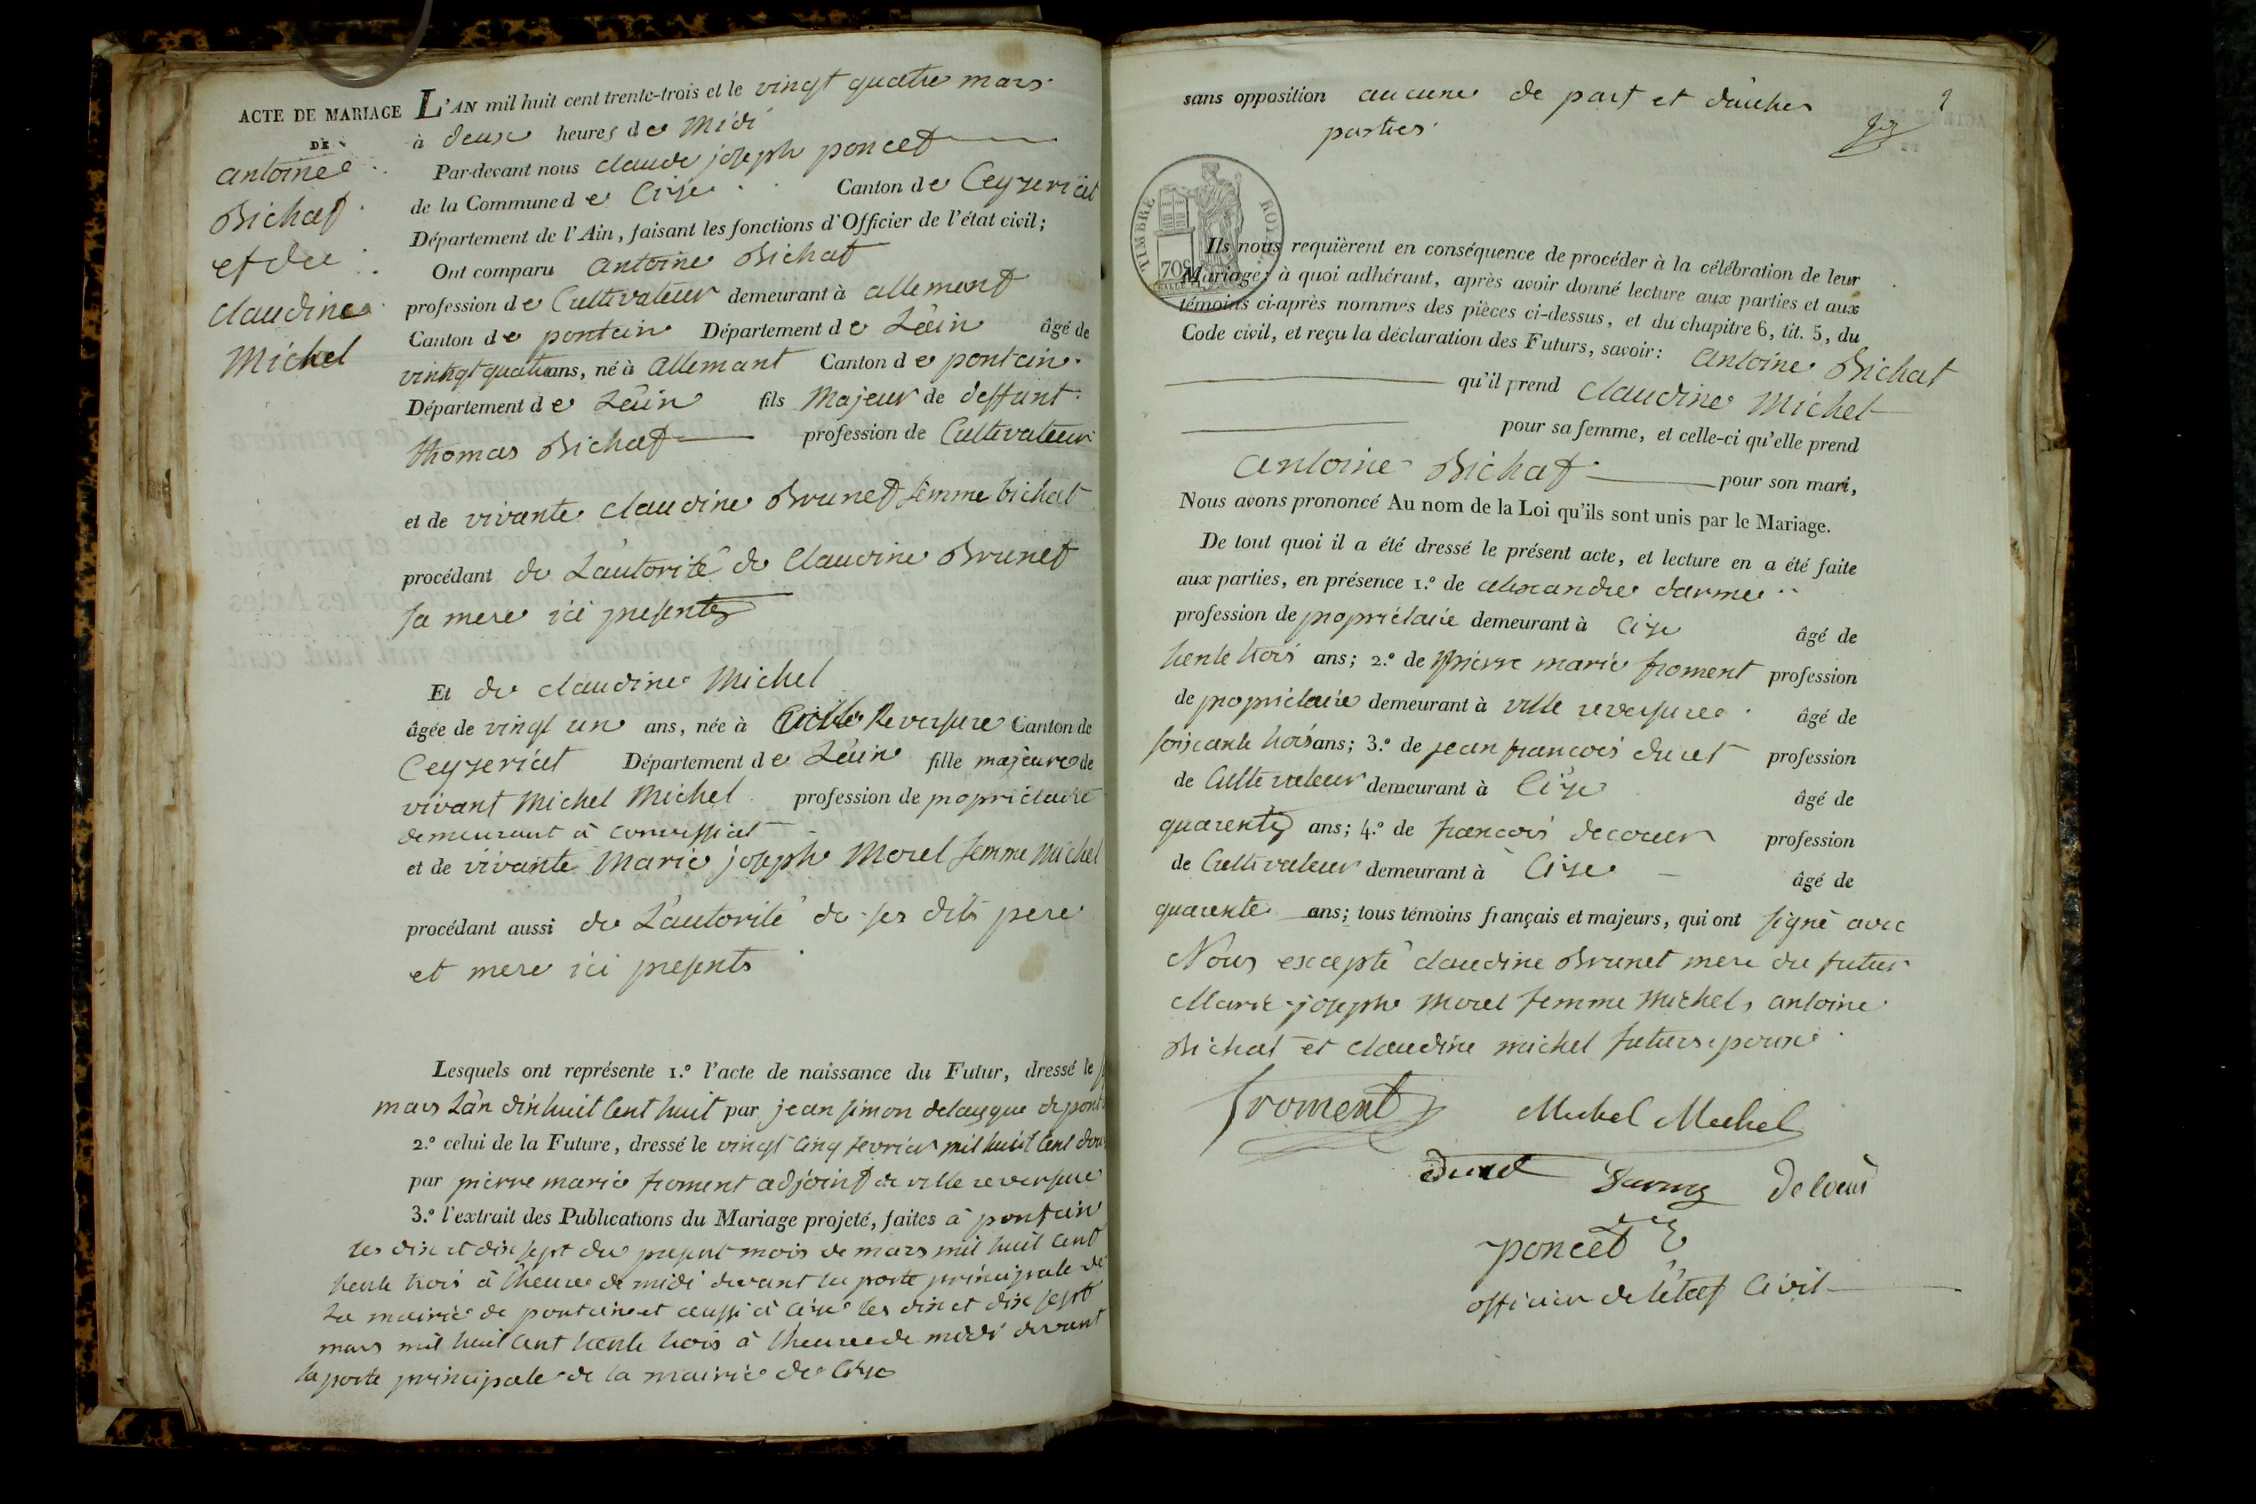 ACTE DE MARIAGE
DE
antoine
Bichat
et de
claudine
Michel
L'AN mil huit cent trente-trois et le vingt quatre mars
à deux heures de Midi
Par-devant nous claude joseph poncet
de la Commune de Cize Canton de Ceyzeriat
Département de l'Ain, faisant les fonctions d'Officier de l'état civil;
Ont comparu antoine Bichat
profession de Cultivateur demeurant à allement
Canton de pontain Département de L'ain âgé de
vinngt quatre ans, né à allemant Canton de pontain
Département de L'ain fils Majeur de deffunt
thomas Bichat profession de Cultivateur
et de vivante claudine Brunet femme bichat
procédant de L'autorité de Claudine Brunet
sa mere ici presente
Et de claudine Michel
âgée de vingt un ans, née à ville Reversure Canton de
Ceyzeriat Département de L'ain fille majeure de
vivant Michel Michel profession de propriétaire
demeurant à
et de vivante Marie joseph Morel femme Michel
procédant aussi de L'autorité de ses dits pere
et mere ici presents
Lesquels ont représenté 1.º l'acte de naissance du Futur, dressé le
mars L'an dixhuit Cent huit par jean simon de
2.º celui de la Future, dressé le vingt cinq fevrier mil huit Cent
par pierre marie froment adjoint de ville reversure
3.º l'extrait des Publications du Mariage projeté, faites à pontain
les dix et dix sept du present mois de mars mil huit cent
trente trois à l'heure de midi devant la porte principale de
la mairie de pontain et aussi à Cize les dix et dix sept
mars mil huit cent trente trois à l'heure de midi devant
la porte principale de la mairie de Cize
2
sans opposition aucune de part et d'autres
parties
TIMBRE ROYAL
70c
Ils nous requièrent en conséquence de procéder à la célébration de leur
Mariage; à quoi adhérant, après avoir donné lecture aux parties et aux
témoins ci-après nommés des pièces ci-dessus, et du chapitre 6, tit. 5, du
Code civil, et reçu la déclaration des Futurs, savoir: antoine Bichat
qu'il prend Claudine Michel
pour sa femme, et celle-ci qu'elle prend
antoine Bichat pour son mari,
Nous avons prononcé Au nom de la Loi qu'ils sont unis par le Mariage.
De tout quoi il a été dressé le présent acte, et lecture en a été faite
aux parties, en présence 1.º de alexandre darme
profession de propriétaire demeurant à Cize âgé de
trente trois ans; 2.º de pierre marie froment profession
de propriétaire demeurant à ville reversure âgé de
soixante trois ans; 3.º de jean francois ducret profession
de Cultivateur demeurant à Cize âgé de
quarente ans; 4.º de francois decoeur profession
de Cultivateur demeurant à Cize âgé de
quarente ans; tous témoins français et majeurs, qui ont signé avec
Nous excepté claudine Brunet mere du futur
Marie joseph Morel femme Michel, antoine
Bichat et claudine michel futurs epoux
froment Michel Michel
Darme
poncet
officier de l'état Civil